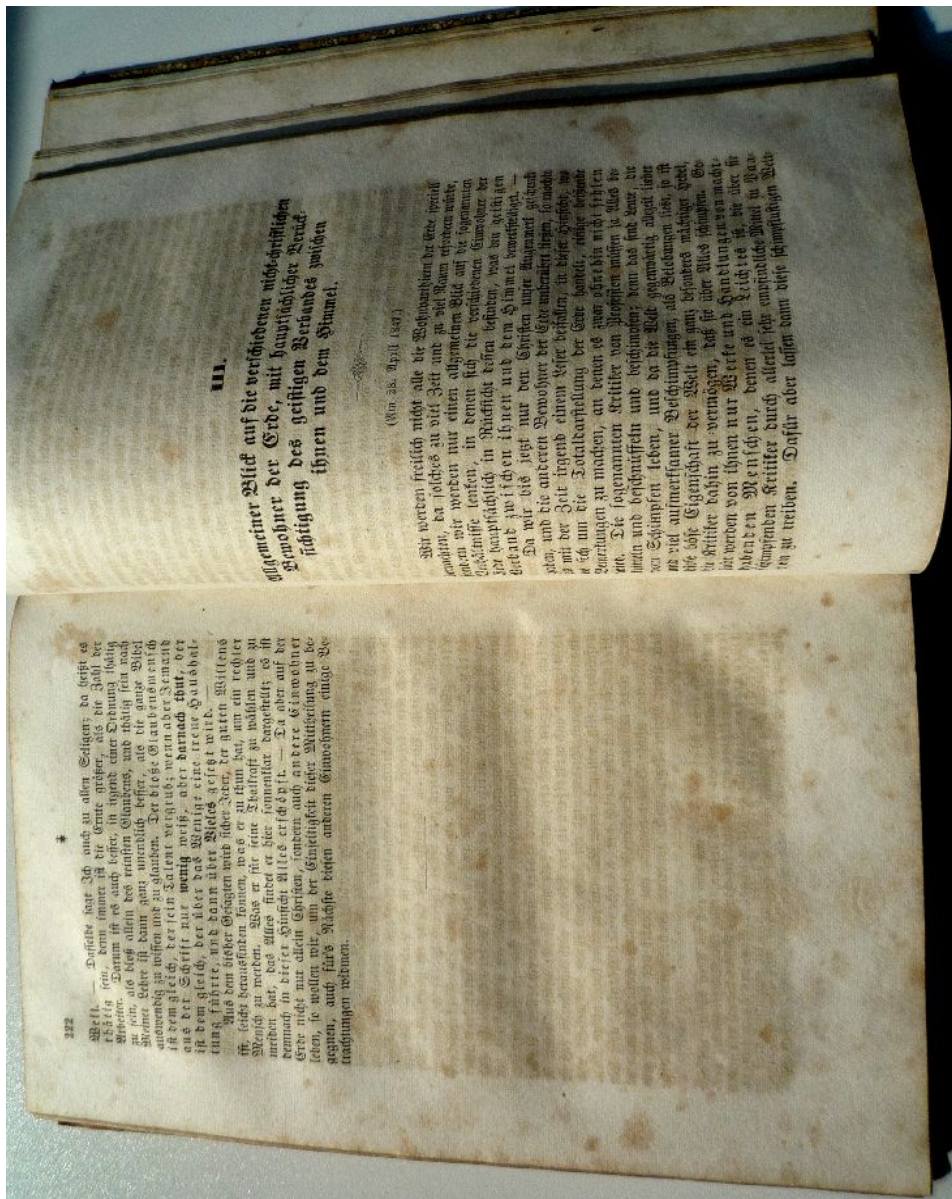 222
Welt. — Dasselbe sage Ich auch zu allen Seligen; da heißt es
thätig sein, denn immer ist die Ernte größer, als die Zahl der
Arbeiter. Darum ist es auch besser, in irgend einer Ordnung thätig
zu sein, als bloß allein des reinsten Glaubens, und thätig sein nach
Meiner Lehre ist dann ganz unendlich besser, als die ganze Bibel
auswendig zu wissen und zu glauben. Der bloße Glaubensmensch
ist dem gleich, der sein Talent vergrub; wenn aber Jemand
aus der Schrift nur wenig weiß, aber darnach thut, der
ist dem gleich, der über das Wenige eine treue Haushal-
tung führte, und dann über Vieles gesetzt wird. —
Aus dem bisher Gesagten wird sicher Jeder, der guten Willens
ist, leicht herausfinden können, was er zu thun hat, um ein rechter
Mensch zu werden. Was er für seine Thatkraft zu wählen und zu
meiden hat, das Alles findet er hier sonnenklar dargestellt; es ist
demnach in dieser Hinsicht Alles erschöpft. — Da aber auf der
Erde nicht nur allein Christen, sondern auch andere Einwohner
leben, so wollen wir, um der Einseitigkeit dieser Mittheilung zu be-
gegnen, auch für's Nächste diesen anderen Einwohnern einige Be-
trachtungen widmen.
III.
Allgemeiner Blick auf die verschiedenen nicht-christlichen
Bewohner der Erde, mit hauptsächlicher Berück-
sichtigung des geistigen Verbandes zwischen
ihnen und dem Himmel.
(Am 28. April 1847.)
Wir werden freilich nicht alle die Bewohner der Erde speciell
da solches zu viel Zeit und zu viel Raum erfordern würde,
sondern wir werden nur einen allgemeinen Blick auf die sogenannten
Verhältnisse lenken, in denen sich die verschiedenen Einwohner der
Erde hauptsächlich in Rücksicht dessen befinden, was den geistigen
Verband zwischen ihnen und dem Himmel bewerkstelliget. —
Da wir bis jetzt nur den Christen unser Augenmerk geschenkt
hatten, und die anderen Bewohner der Erde unberührt ließen, so möchte
es mit der Zeit irgend einem Leser beifallen, in dieser Hinsicht, wo
es sich um die Totaldarstellung der Erde handelt, einige beißende
Bemerkungen zu machen, an denen es zwar ohnehin nicht fehlen
wird. Die sogenannten Kritiker von Profession müssen ja Alles be-
kritteln und beschnüffeln und beschimpfen; denn das sind Leute, die
vom Schimpfen leben, und da die Welt gegenwärtig allezeit lieber
und viel aufmerksamer Beschimpfungen, als Belobungen liest, so ist
diese böse Eigenschaft der Welt ein ganz besonders mächtiger Hebel,
die Kritiker dahin zu vermögen, daß sie über Alles schimpfen. Es-
werden von ihnen nur Werke und Handlungen von macht-
habenden Menschen, denen es ein Leichtes ist, die über sie
schimpfenden Kritiker durch allerlei sehr empfindliche Mittel zu Paa-
ren zu treiben. Dafür aber lassen dann diese schimpflustigen Welt-